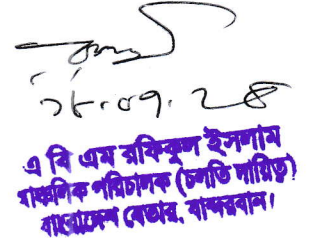 এ বি এম রফিকুল ইসলাম
আঞ্চলিক পরিচালক (চলতি দায়িত্ব)
বাংলাদেশ বেতার, বান্দরবান।